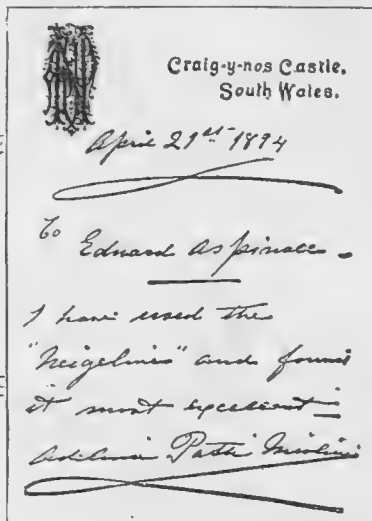 Craig-y-nos Castle,
South Wales.
April 21st 1894
To Edward Aspinall.
I have used the
"Neigeline" and found
it most excellent
Adelina Patti Nicolini